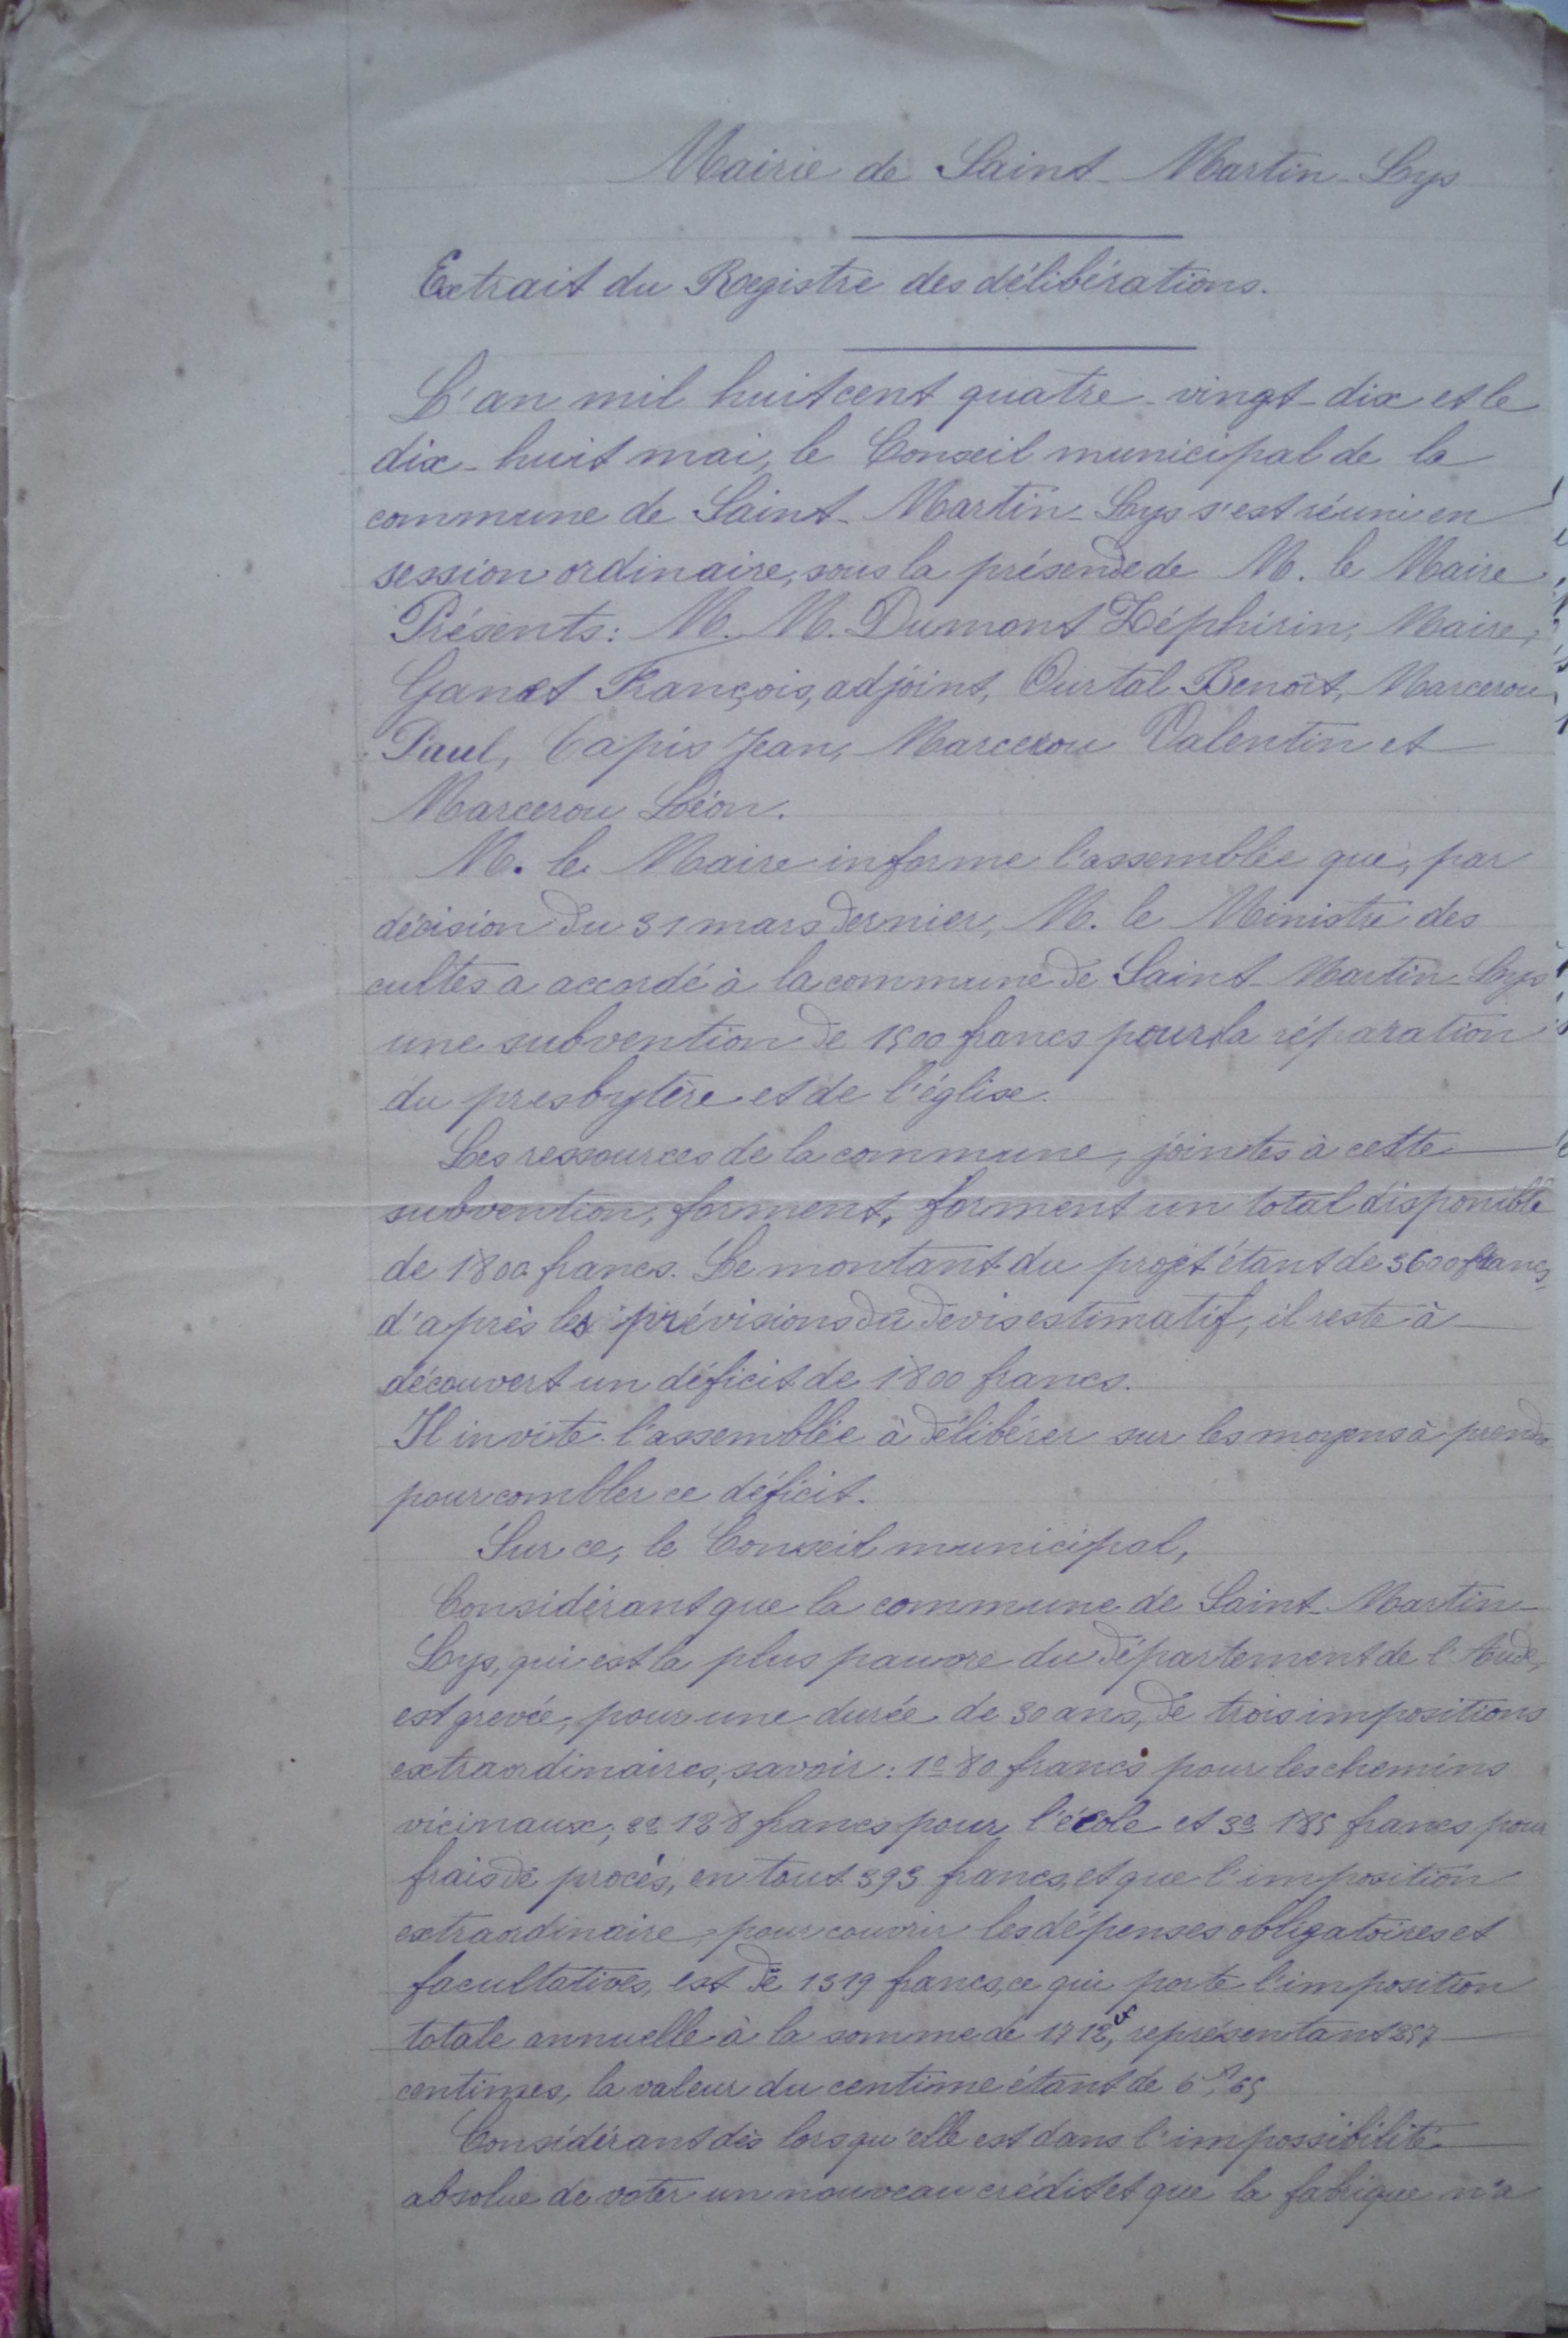 Mairie de Saint-Martin-Lys
Extrait du Registre des délibérations.
L'an mil huit cent quatre-vingt-dix et le
dix-huit mai, le Conseil municipal de la
commune de Saint-Martin-Lys s'est réuni en
session ordinaire, sous la présende de M. le Maire
Présents: M. M. Dumont Zéphirin, Maire,
Ganet François, adjoint, Ourtal Benoît, Marcerou
Paul, Capis Jean, Marcerou Valentin et
Marcerou Léon.
M. le Maire informe l'assemblée que, par
décision du 31 mars dernier, M. le Ministre des
cultes a accordé à la commune de Saint-Martin-Lys
une subvention de 1500 francs pour la réparation
du presbytère et de l'église.
Les ressources de la commune, jointes à cette
subvention, forment, forment un total disponible
de 1800 francs. Le montant du projet étant de 3600 francs,
d'après les prévisions du devis estimatif, il reste à
découvert un déficit de 1800 francs.
Il invite l'assemblée à délibérer sur les moyens à prendre
pour combler ce déficit.
Sur ce, le Conseil municipal,
Considérant que la commune de Saint-Martin-
Lys, qui est la plus pauvre du département de l'Aude,
est grevée, pour une durée de 30 ans, de trois impositions
extraordinaires, savoir: 1º 80 francs pour les chemins
vicinaux; 2º 128 francs pour l'école et 3º 185 francs pour
frais de procès, en tout 393 francs, et que l'imposition
extraordinaire, pour couvrir les dépenses obligatoires et
facultatives, est de 1319 francs, ce qui porte l'imposition
totale annuelle à la somme de 1712f, représentant 257
centimes, la valeur du centime étant de 6f,65
Considérant dès lors qu'elle est dans l'impossibilité
absolue de voter un nouveau crédit et que la fabrique n'a